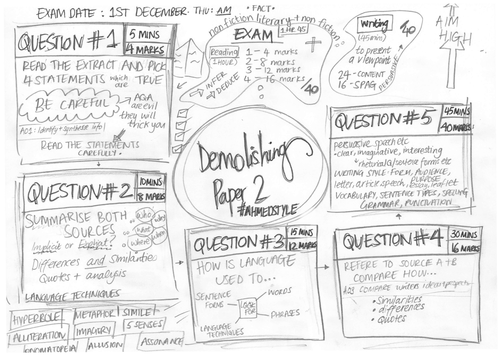 EXAM DATE: 1ST DECEMBER. THU: AM
• FACT •
nonfiction literary + non fiction
EXAM 1 HR 45
Reading
(1 HOUR)
1 - 4 marks
2 - 8 marks
3 - 12 marks
4 - 16 marks
/40
→ INFER
→ DEDUCE
Writing
(45 mins)
/40
to present
a viewpoint
24 - CONTENT
16 - SPAG
AIM
HIGH
QUESTION #1
5 MINS
4 MARKS
READ THE EXTRACT AND PICK
4 STATEMENTS which are TRUE
BE CAREFUL
AQA
are evil
they will
trick you
AO1: Identify + synthesise info
READ THE STATEMENTS
CAREFULLY.
Demolishing
Paper 2
#AHMEDSTYLE
QUESTION #5
45 MINS
40 MARKS
persuasive speech etc
• clear, imaginative, interesting
WRITING STYLE: FORM, AUDIENCE,
PURPOSE
letter, article, speech, essay, leaflet
VOCABULARY, SENTENCE TYPES, SPELLING
GRAMMAR, PUNCTUATION
QUESTION #2
10 MINS
8 MARKS
SUMMARISE BOTH
SOURCES
Who
What
Where
Implicit or Explicit
Differences and Similarities
Quotes + analysis
LANGUAGE TECHNIQUES
QUESTION #3
15 MINS
12 MARKS
HOW IS LANGUAGE
USED TO...
SENTENCE
FORMS
WORDS
LOOK
FOR
PHRASES
LANGUAGE
TECHNIQUES
QUESTION #4
30 MINS
16 MARKS
REFERE TO SOURCE A + B
COMPARE HOW...
AO3 COMPARE writers ideas + perspectives
• Similarities
• differences
• Quotes
HYPERBOLE
METAPHOR
SIMILE
ALLITERATION
IMAGERY
5 SENSES
ONOMATOPOEIA
ALLUSION
ASSONANCE